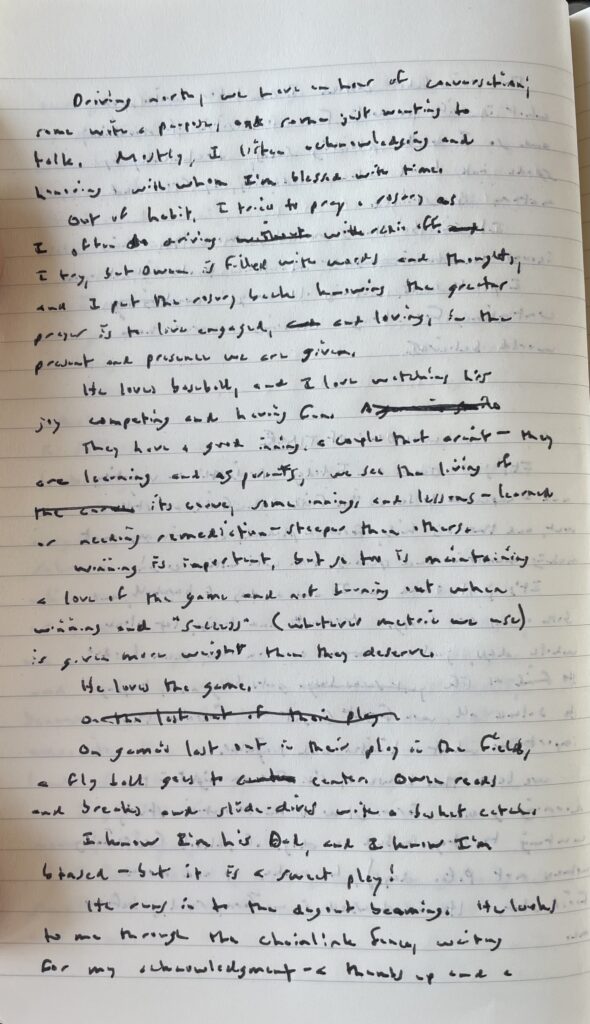 Driving north, we have an hour of conversation;
some with a purpose, and some just wanting to
talk. Mostly, I listen acknowledging and
honoring, with whom I'm blessed with time.
Out of habit, I tried to pray a rosary as
I often do driving without with radio off. and
I try, but Owen is filled with words and thoughts,
and I put the rosary back knowing the greater
prayer is to live engaged, and and loving, in the
present and presence we are given.
He loves baseball, and I love watching his
joy competing and having fun.
They have a good inning, a couple that aren't – they
are learning and as parents, we see the living of
the curve its curve, some innings and lessons – learned
or needing remediction – steeper than others.
Winning is important, but so too is maintaining
a love of the game and not burning out when
winning and "success" (whatever metric we use)
is given more weight than they deserve.
He loves the game.
On the last out of their play
On game's last out in their play in the field,
a fly ball goes to center. Owen reads
and breaks and slide-dives with a basket catch.
I know I'm his Dad, and I know I'm
biased – but it is a sweet play!
He runs in to the dugout beaming. He looks
to me through the chainlink fence, waiting
for my acknowledgment – a thumbs up and a